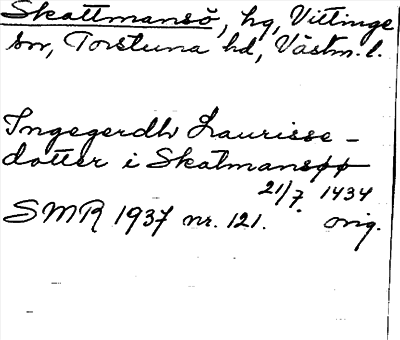 Skattmansö, hg, Vittinge
sn, Torstuna hd, Västm. l.
Ingegerdh Laurisse-
dotter i Skatmansøø
21/7. 1434
SMR 1937 nr. 121. orig.